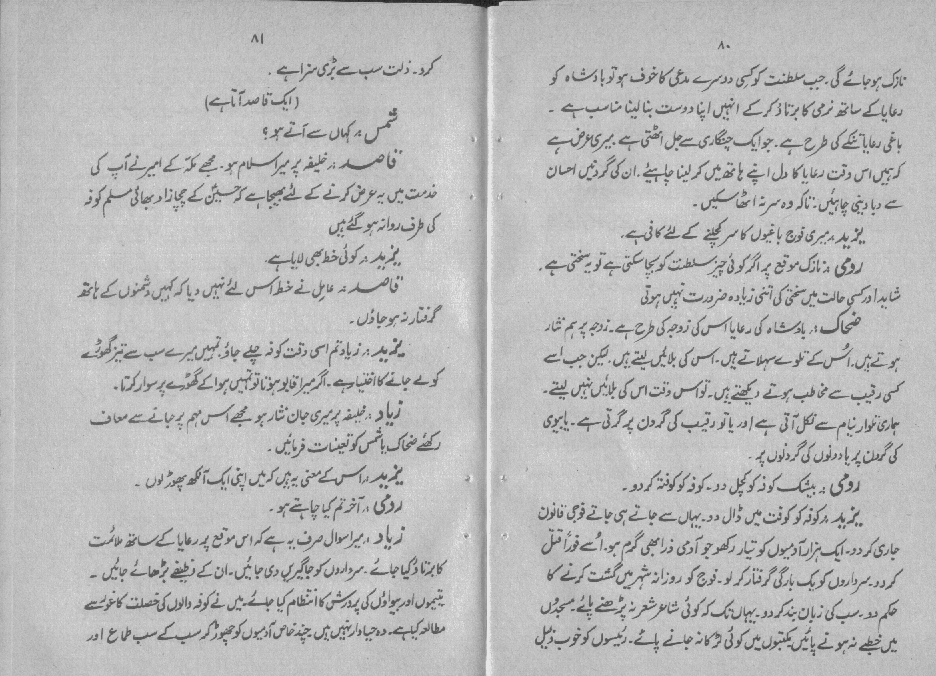 ۸۰
نازک ہو جائے گی۔ جب سلطنت کو کسی دوسرے مدعی کا خوف ہو تو بادشاہ کو
رعایا کے ساتھ نرمی کا برتاؤ کر کے انہیں اپنا دوست بنا لینا مناسب ہے ۔
باغی رعایا تنکے کی طرح ہے۔ جو ایک چنگاری سے جل اٹھتی ہے میری عرض ہے
کہ ہمیں اس وقت رعایا کا دل اپنے ہاتھ میں کر لینا چاہیئے۔ ان کی گردنیں احسان
سے دبا دینی چاہئیں: تاکہ وہ سر نہ اٹھا سکیں۔
یزید :۔ میری فوج باغیوں کا سر کچلنے کے لئے کافی ہے۔
رومی :۔ نازک موقع پر اگر کوئی چیز سلطنت کو بچا سکتی ہے تو یہ سختی ہے۔
شاید اور کسی حالت میں سختی کی اتنی زیادہ ضرورت نہیں ہوتی
ضحاک :۔ بادشاہ کی رعایا اس کی زوجہ کی طرح ہے۔ زوجہ پر ہم نثار
ہوتے ہیں۔ اُس کے تلوے سہلاتے ہیں۔ اس کی بلائیں لیتے ہیں۔ لیکن جب اسے
کسی رقیب سے مخاطب ہوتے دیکھتے ہیں۔ تو اس وقت اس کی بلائیں نہیں لیتے۔
ہماری تلوار نیام سے نکل آتی ہے اور یا تو رقیب کی گردن پر گرتی ہے۔ یا بیوی
کی گردن پر یا دونوں کی گردنوں پر۔
رومی :۔ بیشک کوفہ کو کچل دو۔ کوفہ کو کوفتہ کر دو۔
یزید :۔ کوفہ کو کوفت میں ڈال دو۔ یہاں سے جاتے ہی جاتے فوجی قانون
جاری کر دو۔ ایک ہزار آدمیوں کو تیار رکھو جو آدمی ذرا بھی گرم ہو۔ اُسے فوراً قتل
کر دو۔ سرداروں کو یک بارگی گرفتار کر لو۔ فوج کو روزانہ شہر میں گشت کرنے کا
حکم دو۔ سب کی زبان بند کر دو۔ یہاں تک کہ کوئی شاعر شعر نہ پڑھنے پائے۔ مسجدوں
میں خطبے نہ ہونے پائیں۔ مکتبوں میں کوئی لڑکا نہ جانے پائے۔ رئیسوں کو خوب ذلیل
۸۱
کردو۔ ذلت سب سے بڑی سزا ہے ۔
(ایک قاصد آتا ہے)
شمس :۔ کہاں سے آتے ہو؟
قاصد :۔ خلیفہ پر میرا سلام ہو۔ مجھے مکہ کے امیر نے آپ کی
خدمت میں یہ عرض کرنے کے لئے بھیجا ہے کہ حسینؑ کے چچا زاد بھائی مسلم کوفہ
کی طرف روانہ ہو گئے ہیں
یزید :۔ کوئی خط بھی لایا ہے۔
قاصد :۔ عامل نے خط اس لئے نہیں دیا کہ کہیں دشمنوں کے ہاتھ
گرفتار نہ ہو جاؤں۔
یزید :۔ زیاد تم اسی وقت کوفہ چلے جاؤ۔ تمہیں میرے سب سے تیز گھوڑے
کو لے جانے کا اختیار ہے۔ اگر میرا قابو ہوتا تو تمہیں ہوا کے گھوڑے پر سوار کرتا۔
زیاد :۔ خلیفہ پر میری جان نثار ہو مجھے اس مہم پر جانے سے معاف
رکھئے ضحاک یا شمس کو تعینات فرمائیں۔
یزید :۔ اس کے معنی یہ ہیں کہ میں اپنی ایک آنکھ پھوڑ لوں ۔
رومی :۔ آخر تم کیا چاہتے ہو۔
زیاد :۔ میرا سوال صرف یہ ہے کہ اس موقع پر رعایا کے ساتھ ملائمت
کا برتاؤ کیا جائے۔ سرداروں کو جاگیریں دی جائیں۔ ان کے وظیفے بڑھائے جائیں ۔
یتیموں اور بیواؤں کی پرورش کا انتظام کیا جائے۔ میں نے کوفہ والوں کی خصلت کا غور سے
مطالعہ کیا ہے۔ وہ حیادار نہیں ہیں چند خاص آدمیوں کو چھوڑ کر سب کے سب طماع اور